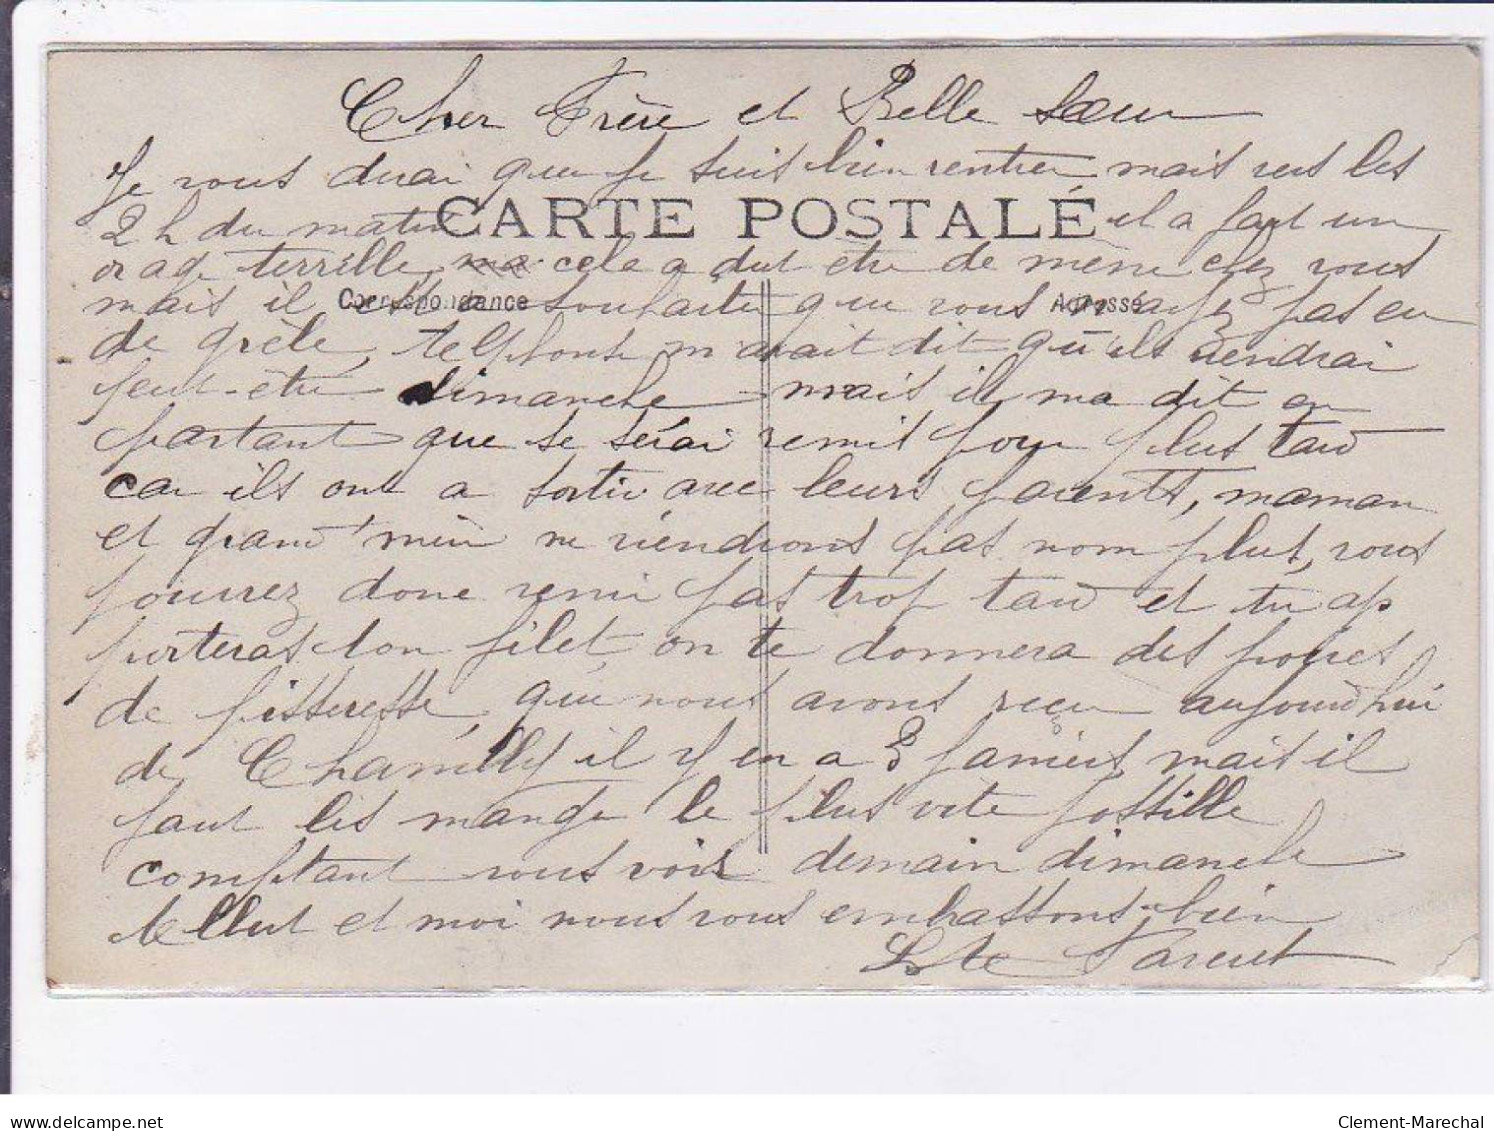 Cher Frère et Belle Sœur
Je vous dirai que je suis bien rentrer mais vers les
2 h du matin CARTE POSTALE il a fait un
orage terrille cela a dut être de même chez vous
mais il Correspondance souhaiter que vous Adresse n'ayez pas eu
de grèle, m'avait dit qu'ils viendrai
peut-être dimanche mais il ma dit en
partant que se serai remit pour plus tard
car ils ont a sortir avec leurs parents, maman
et grand'mère ne viendrons pas nom plus, vous
pourrez donc venir pas trop tard et tu ap
porteras ton filet, on te donnera des poires
de que nous avons reçu aujourd'hui
de Chamilly il y en a 3 paniers mais il
faut les mange le plus vite possille
comptant vous voir demain dimanche
et moi nous vous embrassons bien
Parent
Clement-Marechal
www.delcampe.net